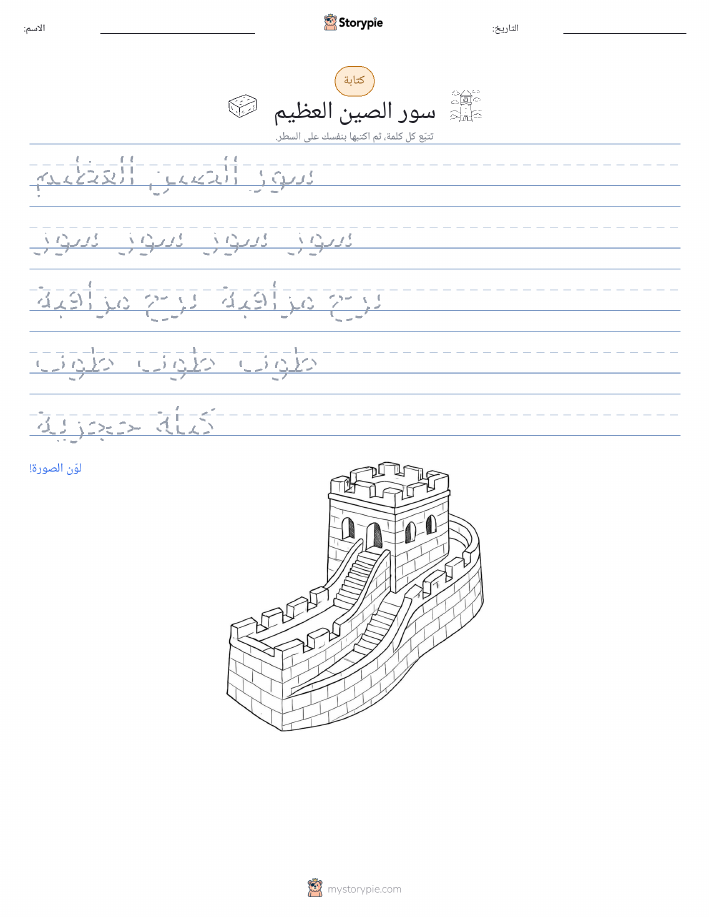 Storypie
الاسم:
التاريخ:
كتابة
سور الصين العظيم
تتبّع كل كلمة، ثم اكتبها بنفسك على السطر.
سور الصين العظيم
سور سور سور سور
برج مراقبة برج مراقبة
طوب طوب طوب
كتلة حجرية
لوّن الصورة!
mystorypie.com